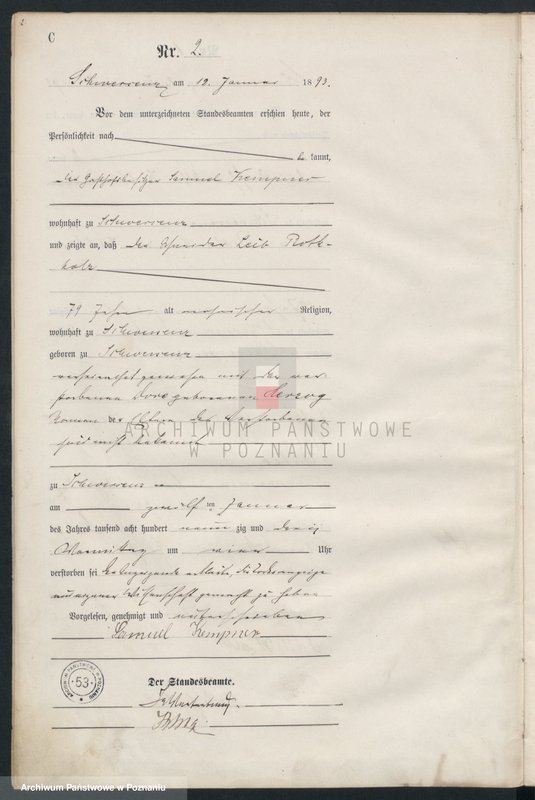 C
Nr. 2.
Schwersenz am 12. Januar 1893.
Vor dem unterzeichneten Standesbeamten erschien heute, der
Persönlichkeit nach
kannt,
der Gasthofbesitzer Samuel Kempner
wohnhaft zu Schwersenz
und zeigte an, daß der Schneider Leib Roth-
holz
79 Jahr alt mosaischer Religion,
wohnhaft zu Schwersenz
geboren zu Schwersenz
verheirathet gewesen mit der ver-
storbenen geborenen Herzog
Namen der Eltern des Verstorbenen
sind nicht bekannt
ARCHIWUM PAŃSTWOWE
W POZNANIU
zu Schwersenz
am zwölf ten Januar
des Jahres tausend acht hundert neun zig und drei
Vormittag um Uhr
verstorben sei
eigener Wissenschaft gemacht zu haben
Vorgelesen, genehmigt und unterschrieben
Samuel Kempner
Der Standesbeamte.
In Vertretung.
ARCHIWUM PAŃSTWOWE W POZNANIU
53
Archiwum Państwowe w Poznaniu